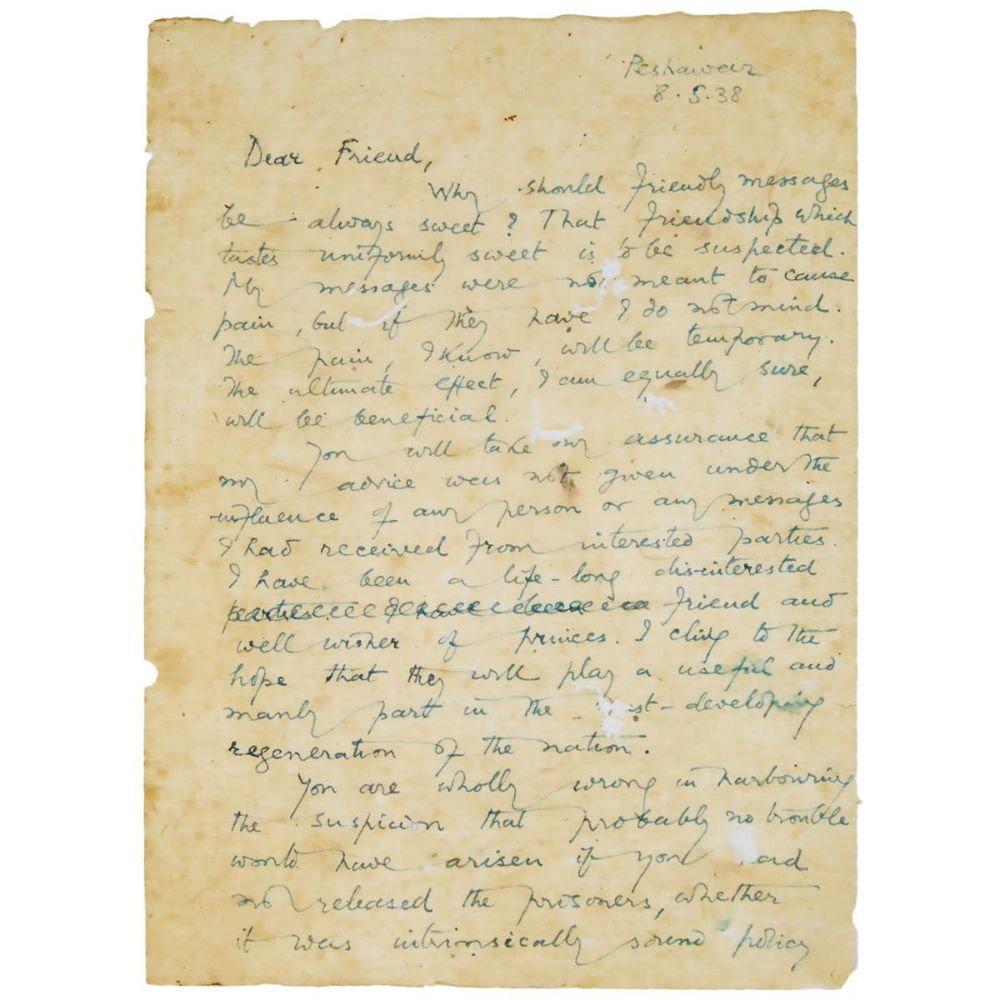 Peshawar
8.5.38
Dear Friend,
Why should friendly messages
be always sweet? That friendship which
tastes uniformly sweet is to be suspected.
My messages were not meant to cause
pain, but if they have I do not mind.
The pain, I know, will be temporary.
The ultimate effect, I am equally sure,
will be beneficial.
You will take my assurance that
my advice was not given under the
influence of any person or any messages
I had received from interested parties.
I have been a life-long disinterested
friend and
well wisher of princes. I cling to the
hope that they will play a useful and
manly part in the st-developing
regeneration of the nation.
You are wholly wrong in harbouring
the suspicion that probably no trouble
would have arisen if you ad
not released the prisoners, whether
it was intrinsically sound policy